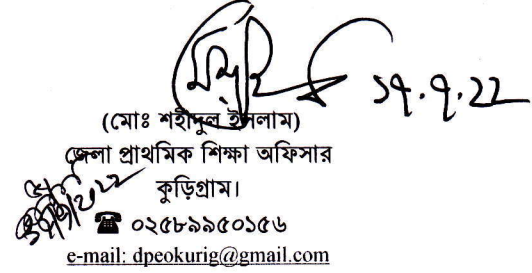 ১৭.৭.২২
(মোঃ শহীদুল ইসলাম)
জেলা প্রাথমিক শিক্ষা অফিসার
কুড়িগ্রাম।
☎ ০২৫৮৯৯৫০১৫৬
e-mail: dpeokurig@gmail.com